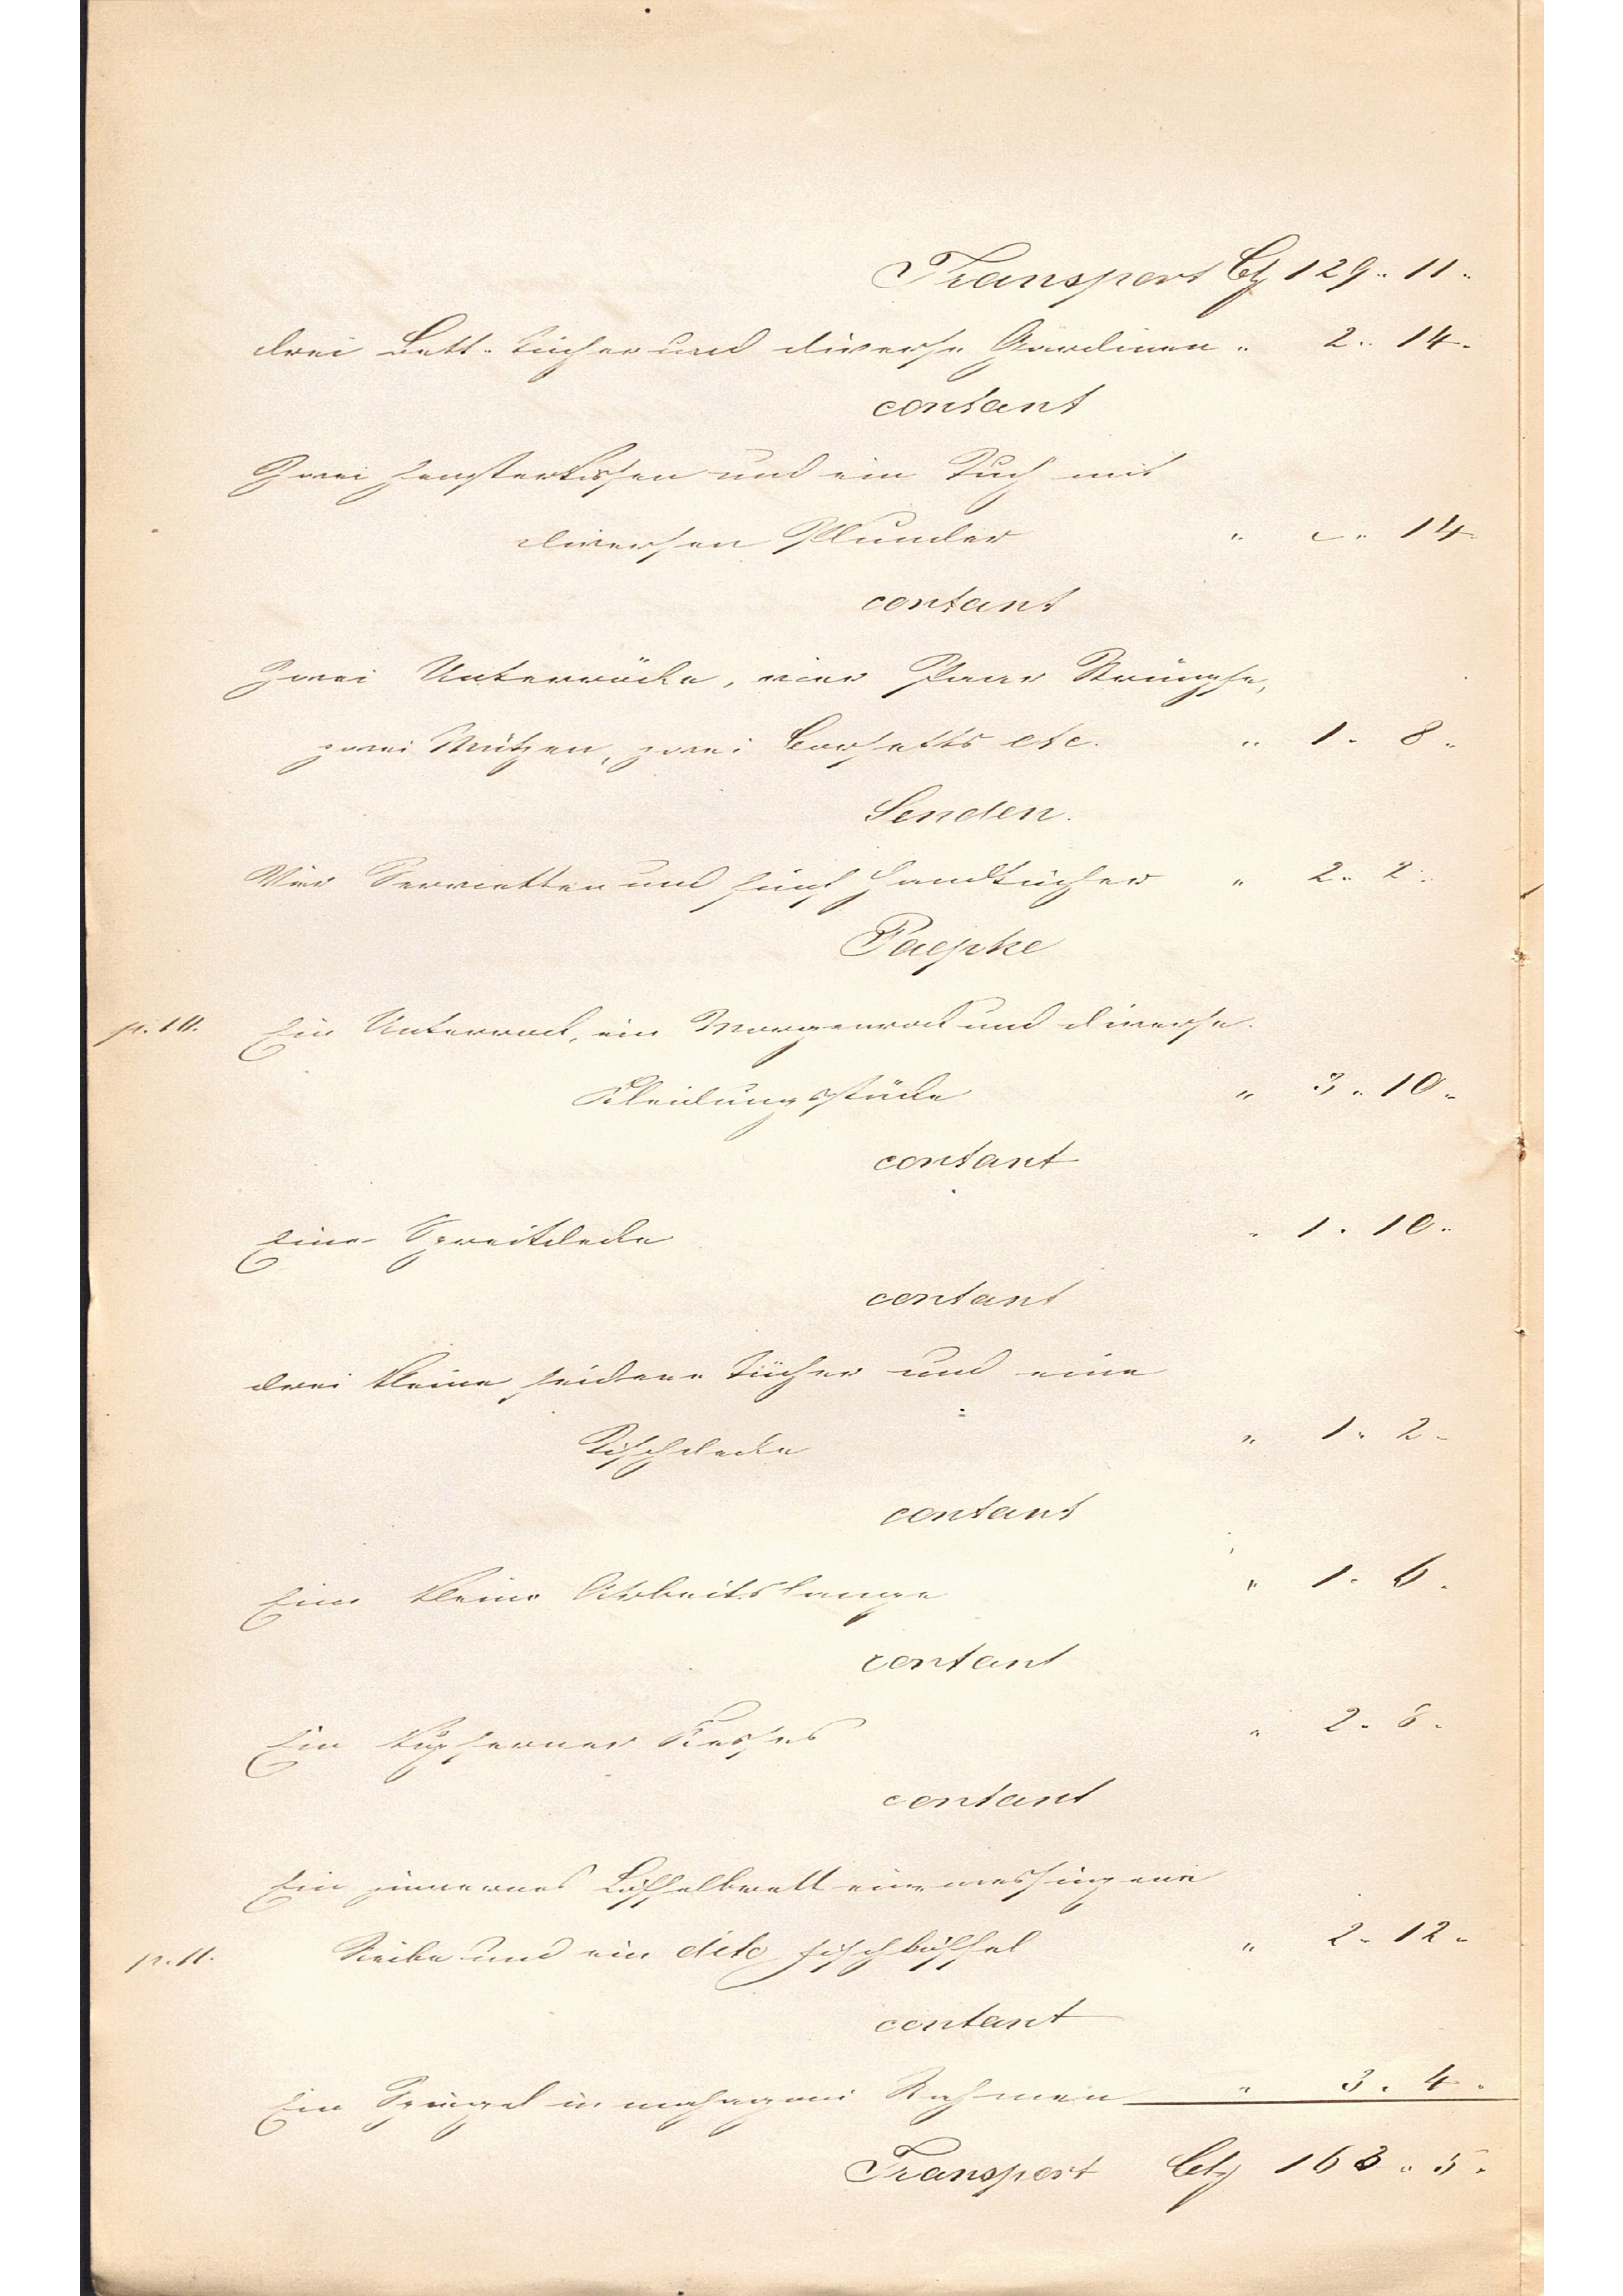 Transport Ct 129 " 11 "
drei Bett-tücher und diverse Gardinen " 2 " 14 "
contant
Zwei Fensterkissen und ein Tuch mit
diversen Plunder " – " 14 "
contant
Zwei Unterröcke, vier Paar Strümpfe,
zwei Mützen, zwei Corsetts etc. " 1 " 8 "
Senden.
Vier Servietten und fünf Handtücher " 2 " 2 "
Paepke
p. 10. Ein Unterrock, ein Morgenrock und diverse
Kleidungsstücke " 3 " 10 "
contant
Eine Spreitdecke " 1 " 10 "
contant
drei kleine seidene Tücher und eine
Tischdecke " 1 " 2 "
contant
Eine kleine Arbeitslampe " 1 " 6 "
contant
Ein kupferner Kessel " 2 " 8 "
contant
Ein zinnernes Löffelbrett eine messingene
p. 11. Reibe und ein dito Fischlöffel " 2 " 12 "
contant
Ein Spiegel in mahagoni Rahmen " 3 " 4 "
Transport Ct 163 " 5 "